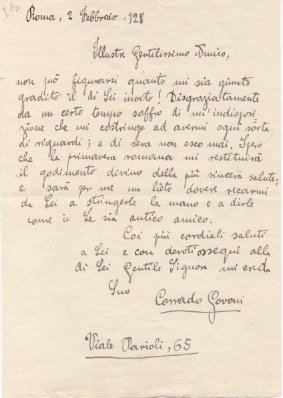 Roma, 2 Febbraio .928
Illustre Gentilissimo Amico,
non può figurarsi quanto mi sia giunto
gradito il di Lei invito! Disgraziatamente
da un certo tempo soffro di un'indispo-
zione che mi costringe ad avermi ogni sorta
di riguardi; e di sera non esco mai. Spero
che la primavera romana mi restituirà
il godimento divino della più sincera salute;
e sarà per me un lieto dovere recarmi
da Lei a stringerle la mano e a dirle
come io Le sia antico amico.
Coi più cordiali saluti
a Lei e con devoti ossequi alla
di Lei Gentile Signora mi creda
Suo
Corrado Govoni
Viale Parioli, 65